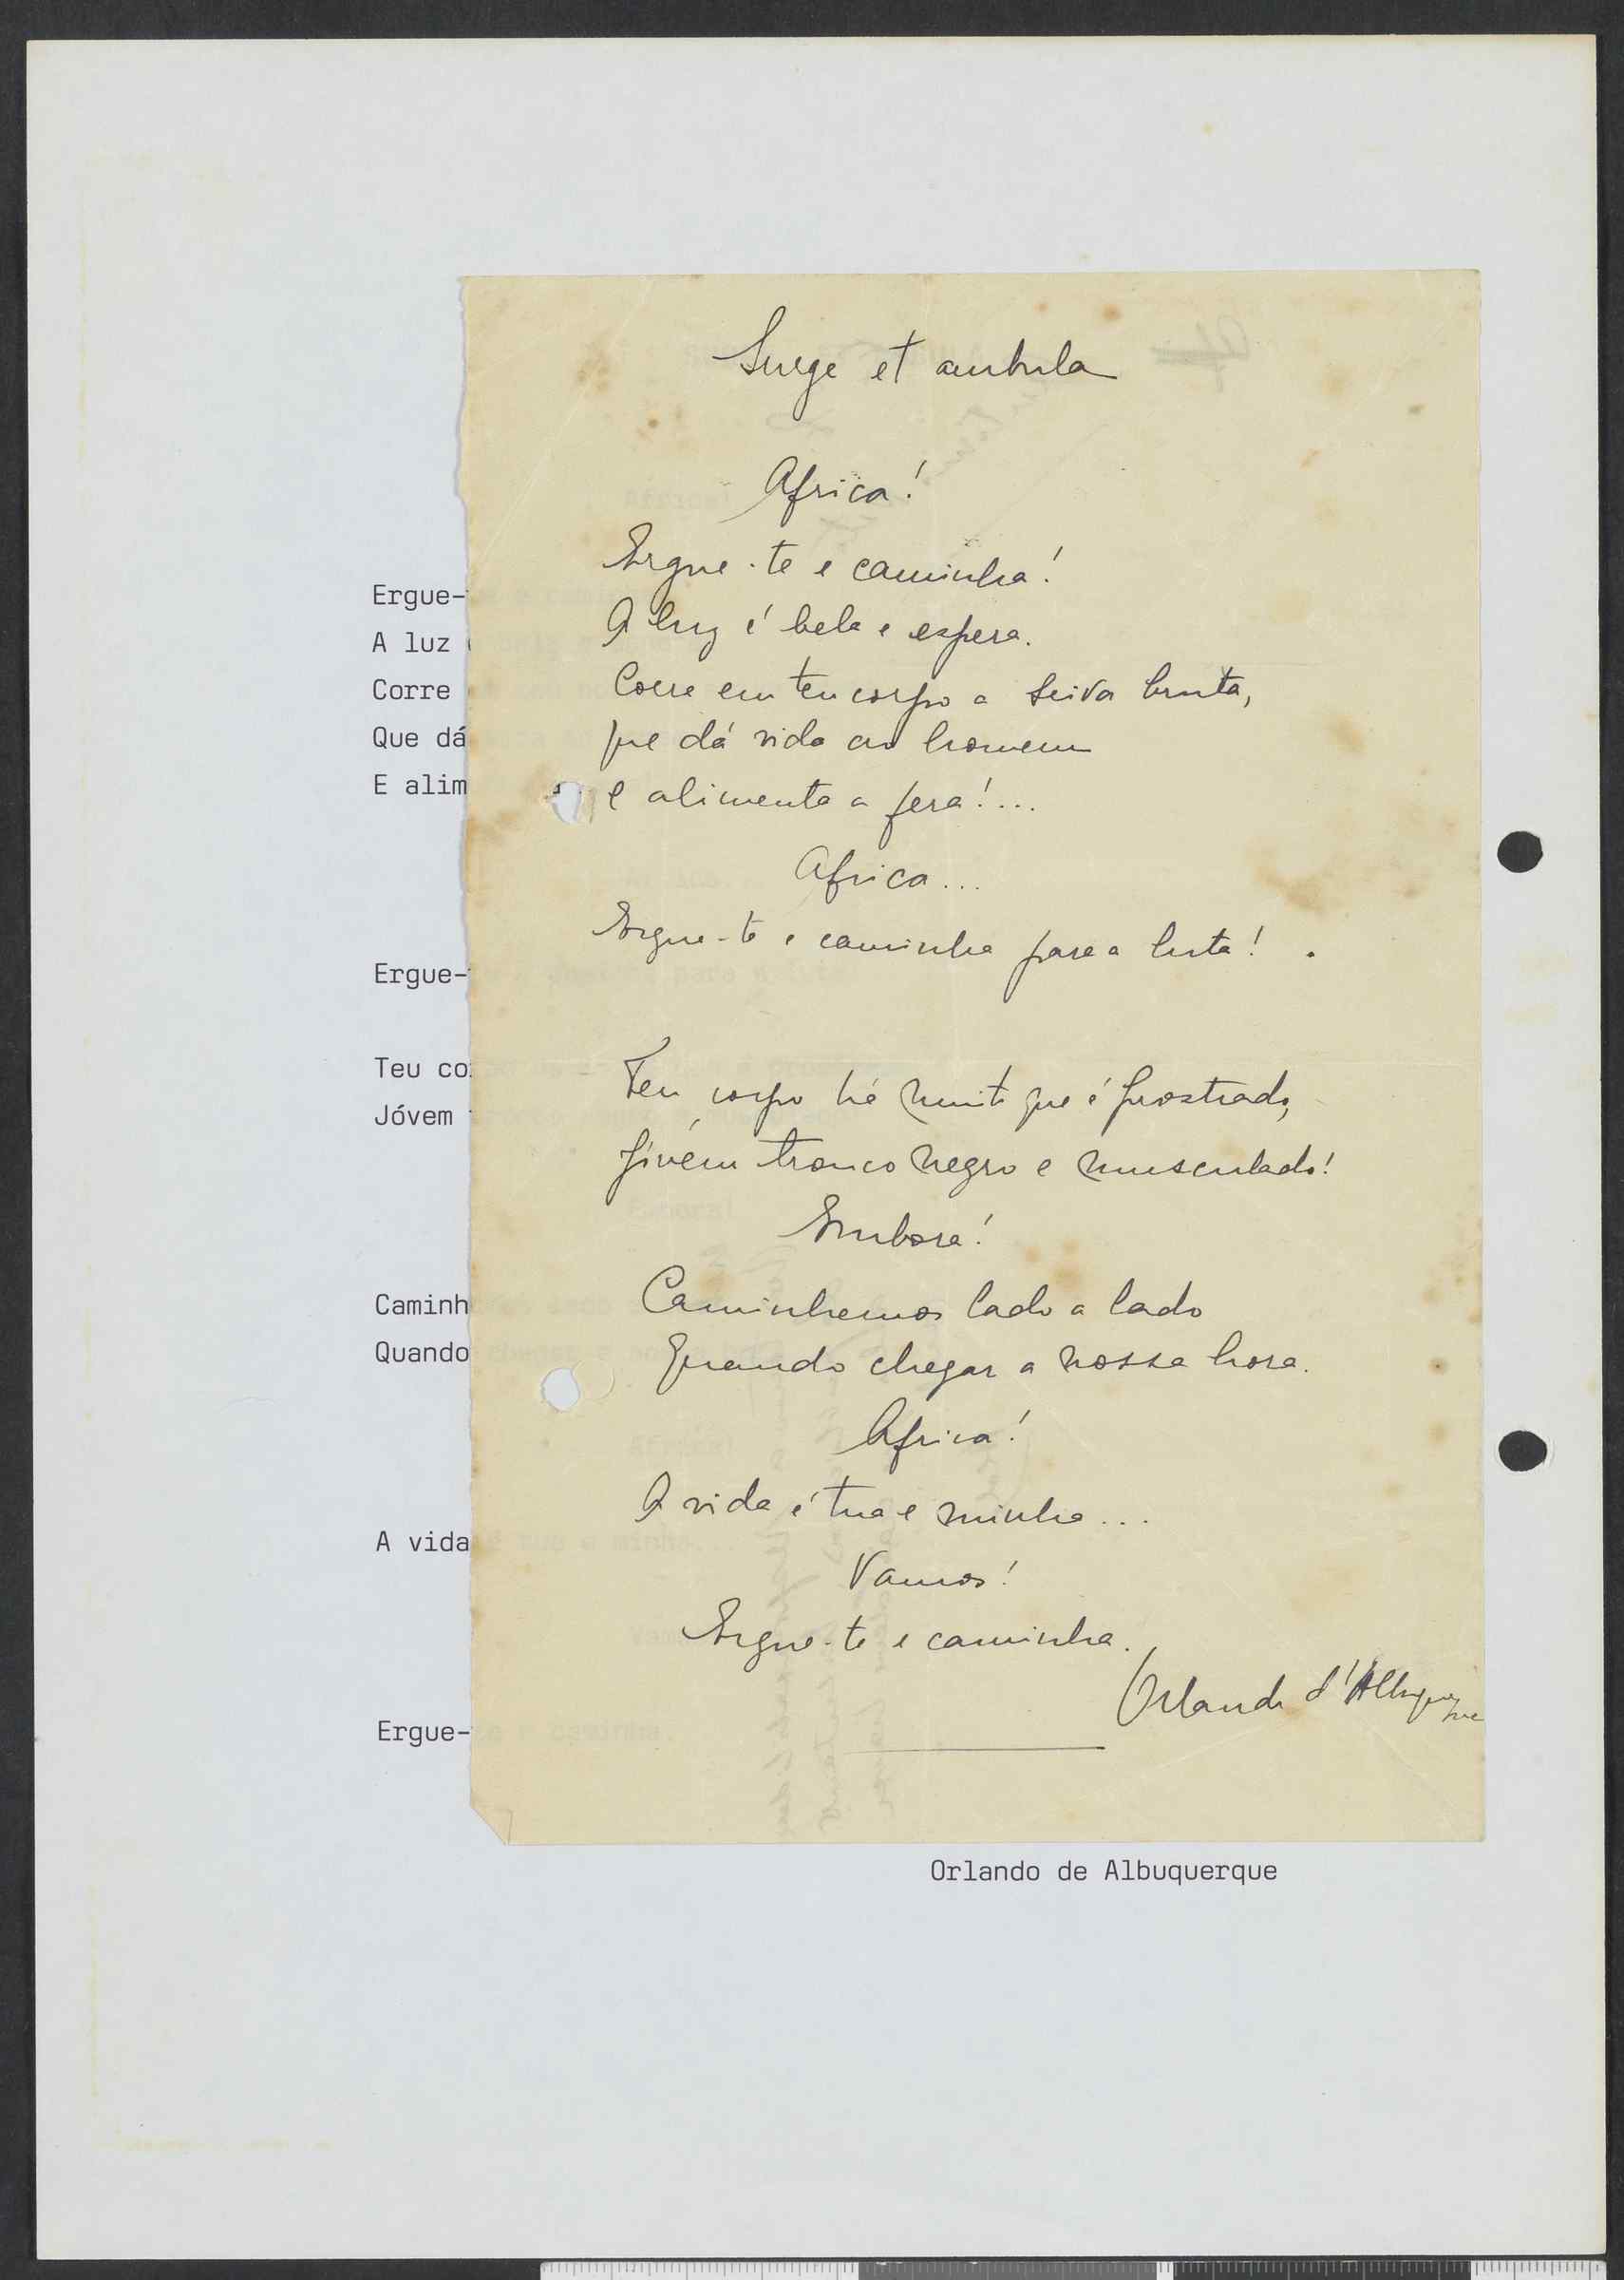 Surge et ambula
Africa!
Ergue-te e caminha!
A luz é bela e espera.
Corre em teu corpo a seiva bruta,
que dá vida ao homem
e alimenta a fera!...
Africa...
Ergue-te e caminha para a luta!
Teu corpo há muito que é prostrado,
Jóvem tronco negro e musculado!
Embora!
Caminhemos lado a lado
Quando chegar a nossa hora.
Africa!
A vida é tua e minha...
Vamos!
Ergue-te e caminha.
Orlando d'Albuquerque
Ergue-
A luz
Corre
Que dá
E alim
Ergue-
Teu co
Jóvem
Caminh
Quando
A vida
Ergue-
Orlando de Albuquerque